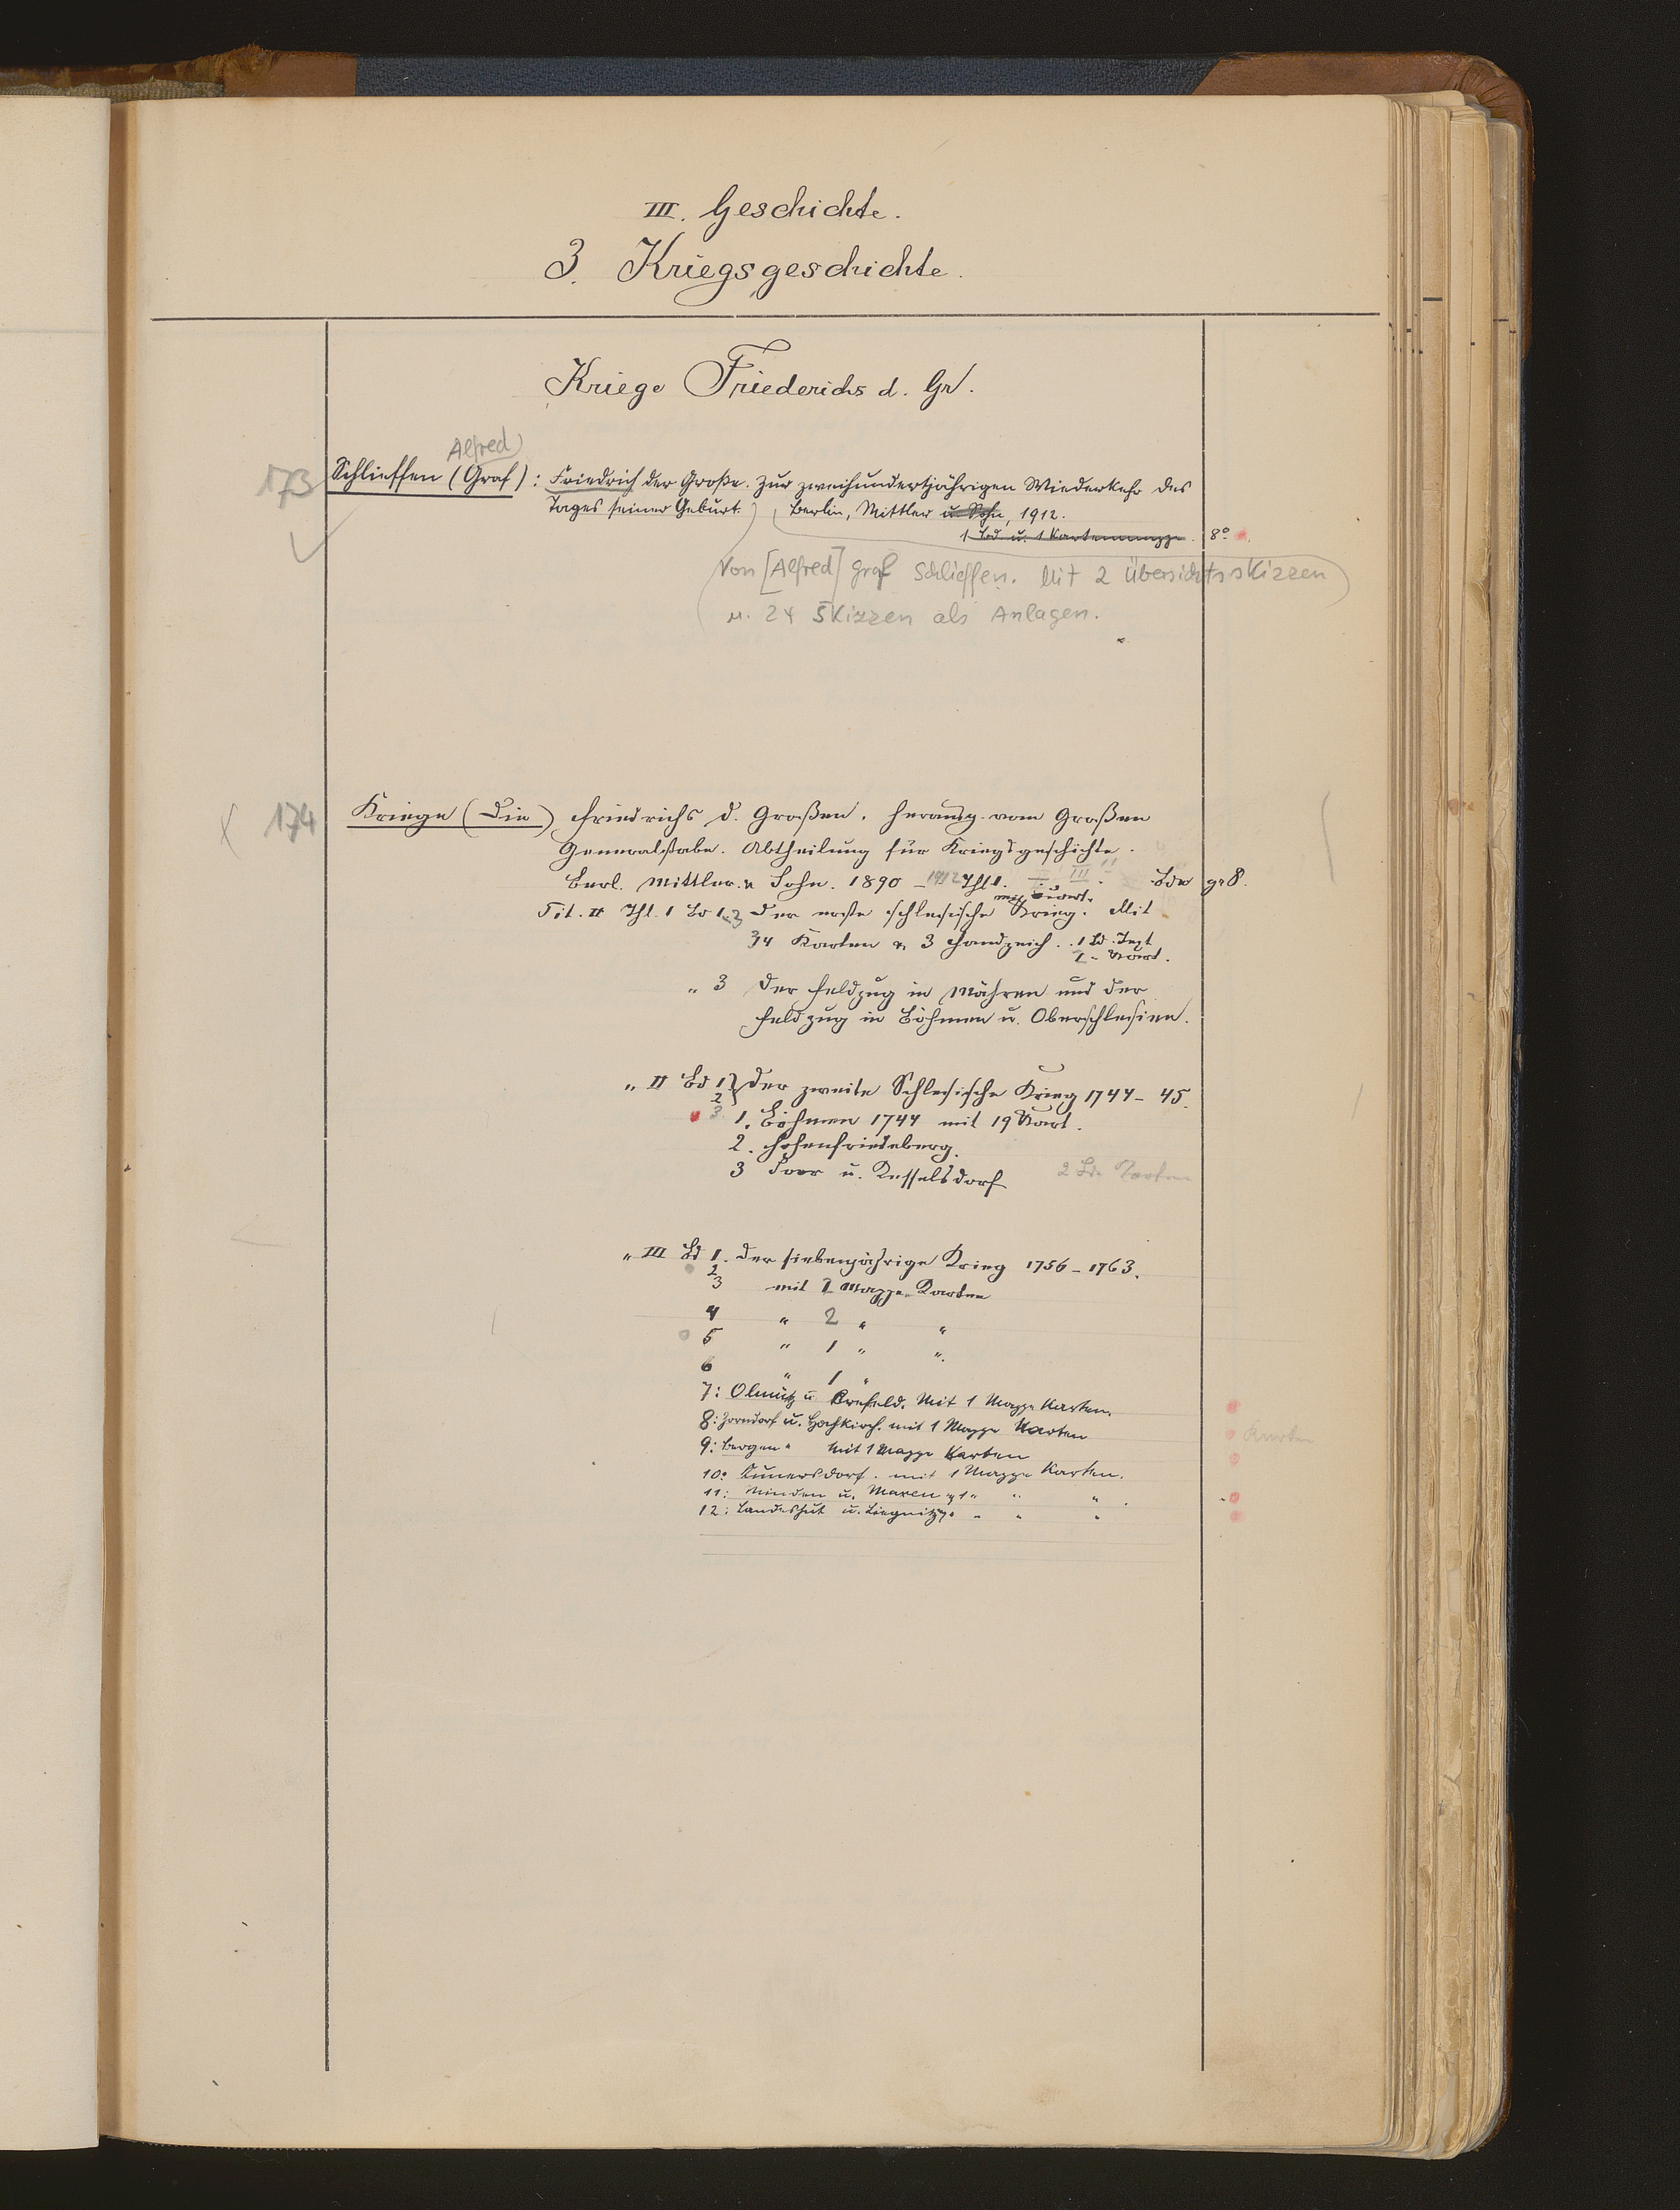 III. Geschichte.
3. Kriegsgeschichte.
Kriege Friederichs d. Gr.
Alfred
173 Schlieffen (Graf) : Friedrich der Große. Zur zweihundertjährigen Wiederkehr des
Tages seiner Geburt. Berlin, Mittler u. Sohn, 1912.
1 Bd u. 1 Kartenmappe. 8°
Von [Alfred] Graf Schlieffen. Mit 2 Übersichtsskizzen
u. 24 Skizzen als Anlagen.
174 Kriege (Die) Friedrichs d. Großen. Herausg. vom Großen
Generalstabe. Abtheilung für Kriegsgeschichte.
Berl. Mittler & Sohn. 1890 - 1912 Thl I. II III. Bde gr 8.
Tit. II Thl. 1 Bd 1, 2 Der erste schlesische Krieg. Mit
34 Karten & 3 Handzeich. 1 Bd. Text
1 " Kart.
" 3 Der Feldzug in Mähren und der
Feldzug in Böhmen u. Oberschlesien.
" II Bd 1 } Der zweite Schlesische Krieg 1744 - 45.
2
3 1. Böhmen 1744 mit 19 Kart.
2. Hohenfriedeberg.
3 Soor u. Kesselsdorf 2 Bde Karten
" III Bd 1. Der siebenjährige Krieg 1756 - 1763.
2
3 mit 1 Mappe Karten
4 " 2 " "
5 " 1 " ".
6 " 1 "
7: Olmütz u. Crefeld. Mit 1 Mappe Karten.
8: Zorndorf u. Hochkirch. mit 1 Mappe Karten Karten
9: Bergen. Mit 1 Mappe Karten
10: Kunersdorf. mit 1 Mappe Karten.
11: Minden u. Maxen " 1 " " "
12: Landeshut u. Liegnitz " " "